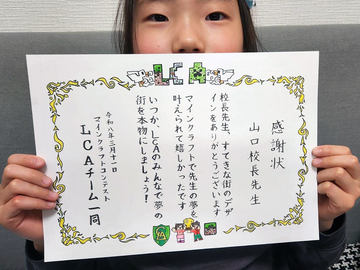 LCA
感謝状
山口校長先生
校長先生、すてきな街のデザ
インをありがとうございます
マインクラフトで先生の夢を
叶えられて嬉しかったです
いつか、LCAのみんなで夢の
街を本物にしましょう！
令和八年三月十一日
マインクラフトコンテスト
LCAチーム一同